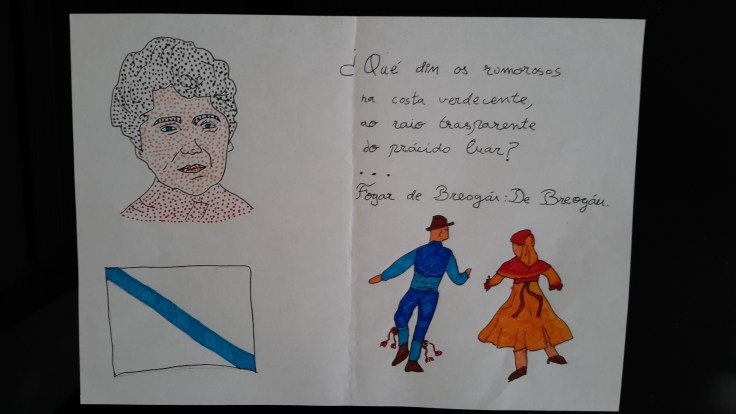 ¿Qué din os rumorosos
na costa verdecente,
ao raio trasparente
do prácido luar?
...
Fogar de Breogán: De Breogán.